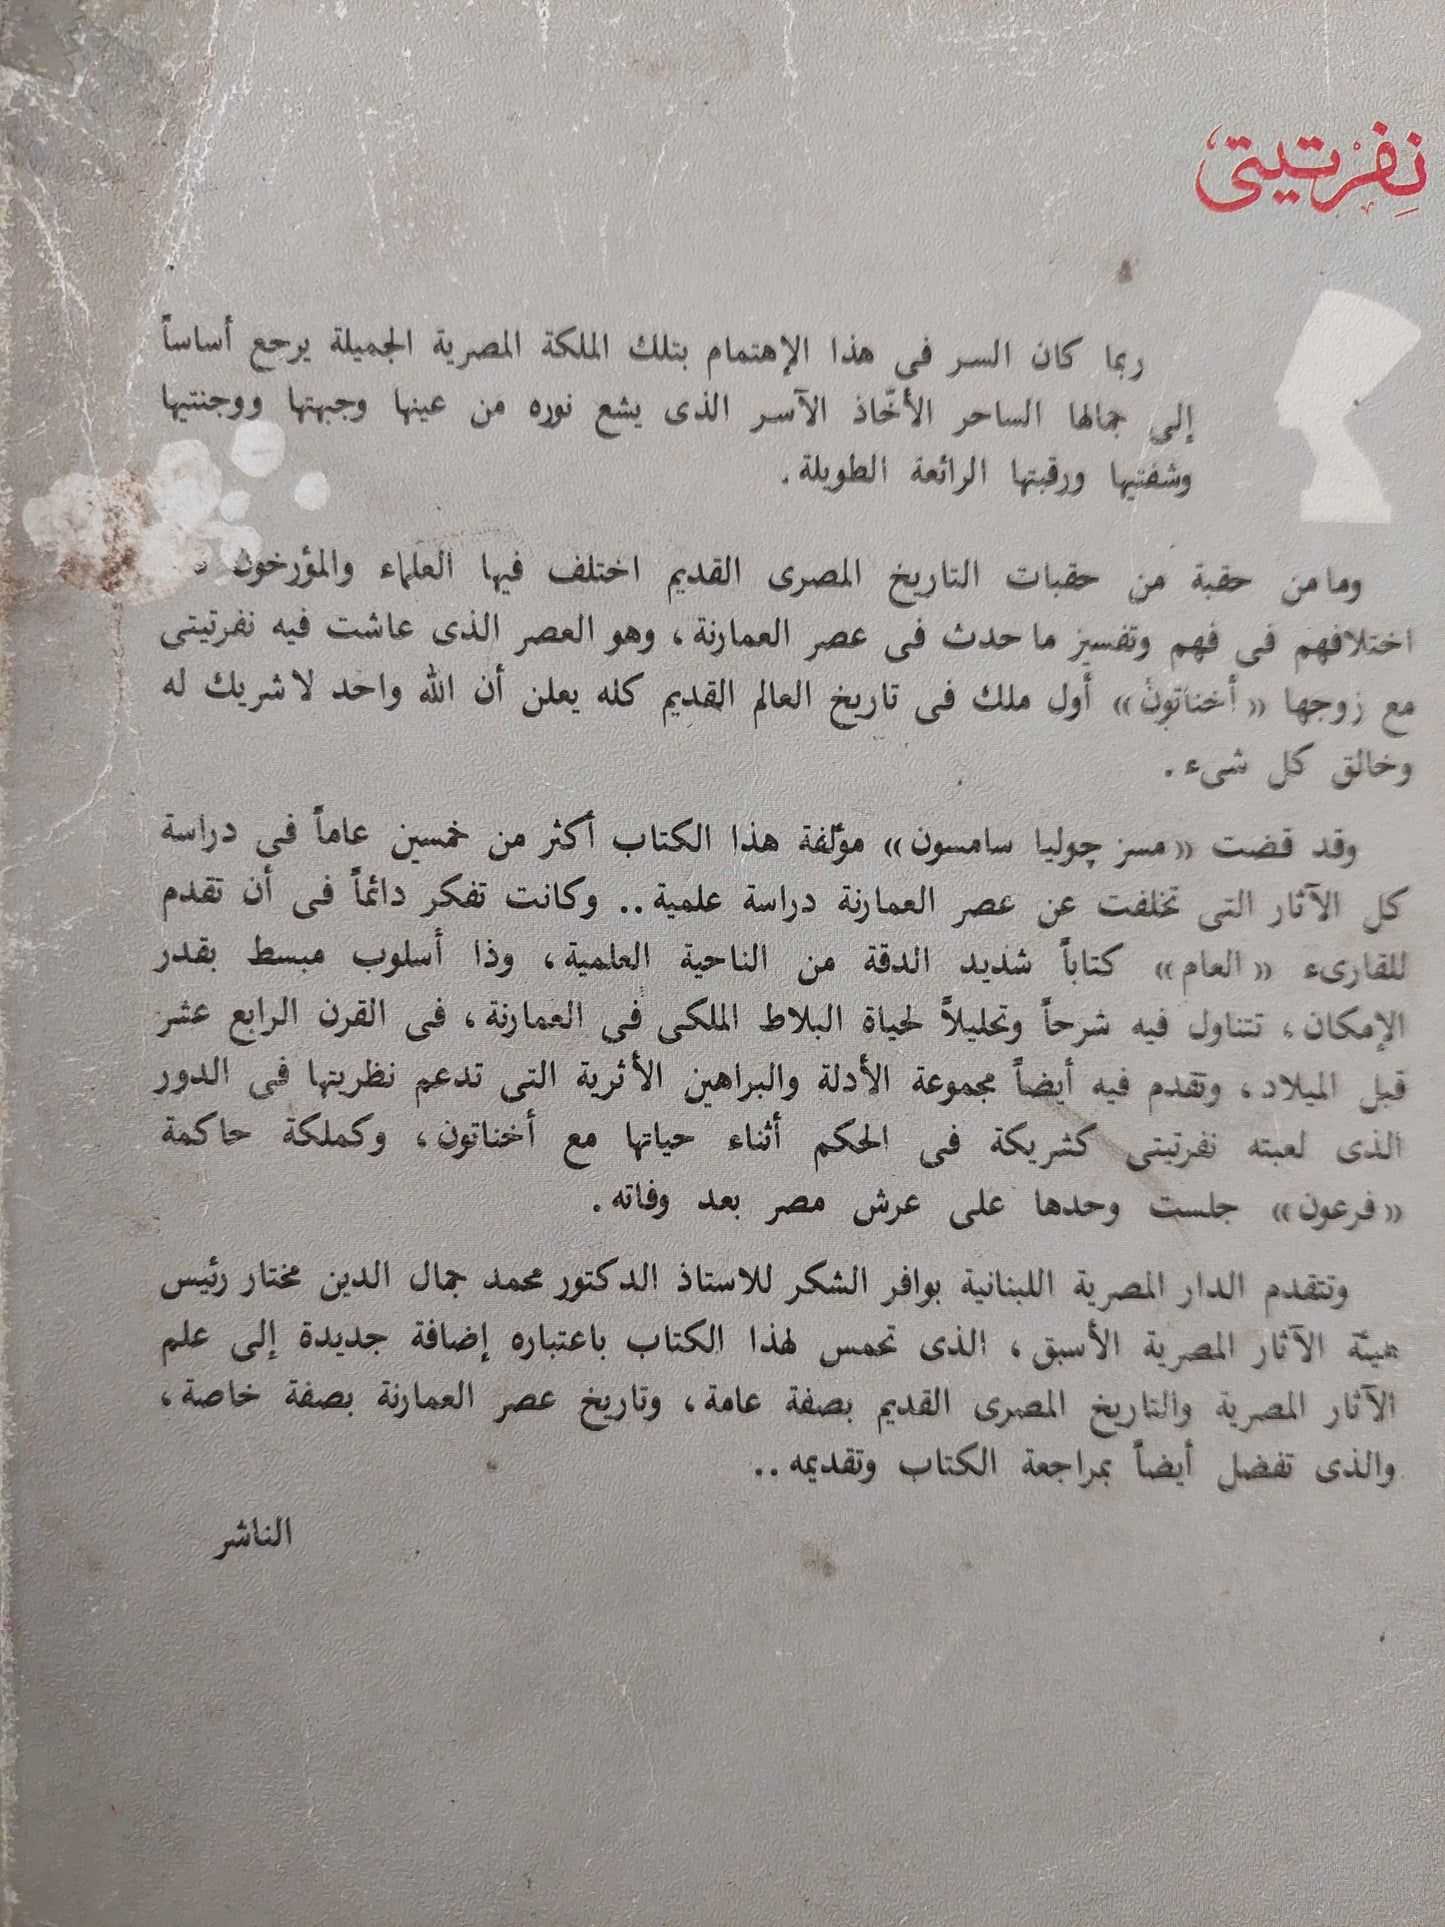 نفرتيتى
ربما كان السر فى هذا الإهتمام بتلك الملكة المصرية الجميلة يرجع أساساً
إلى جمالها الساحر الأخّاذ الآسر الذى يشع نوره من عينها وجبهتها ووجنتيها
وشفتيها ورقبتها الرائعة الطويلة .
وما من حقبة من حقبات التاريخ المصرى القديم اختلف فيها العلماء والمؤرخون
اختلافهم فى فهم وتفسير ما حدث فى عصر العمارنة ، وهو العصر الذى عاشت فيه نفرتيتى
مع زوجها « أخناتون » أول ملك فى تاريخ العالم القديم كله يعلن أن الله واحد لا شريك له
وخالق كل شىء .
وقد قضت « مسز چوليا سامسون » مؤلفة هذا الكتاب أكثر من خمسين عاماً فى دراسة
كل الآثار التى تخلفت عن عصر العمارنة دراسة علمية .. وكانت تفكر دائماً فى أن تقدم
للقارىء « العام » كتاباً شديد الدقة من الناحية العلمية ، وذا أسلوب مبسط بقدر
الإمكان ، تتناول فيه شرحاً وتحليلاً لحياة البلاط الملكى فى العمارنة ، فى القرن الرابع عشر
قبل الميلاد ، وتقدم فيه أيضاً مجموعة الأدلة والبراهين الأثرية التى تدعم نظريتها فى الدور
الذى لعبته نفرتيتى كشريكة فى الحكم أثناء حياتها مع أخناتون ، وكملكة حاكمة
« فرعون » جلست وحدها على عرش مصر بعد وفاته .
وتتقدم الدار المصرية اللبنانية بوافر الشكر للاستاذ الدكتور محمد جمال الدين مختار رئيس
هيئة الآثار المصرية الأسبق ، الذى تحمس لهذا الكتاب باعتباره إضافة جديدة إلى علم
الآثار المصرية والتاريخ المصرى القديم بصفة عامة ، وتاريخ عصر العمارنة بصفة خاصة ،
والذى تفضل أيضاً بمراجعة الكتاب وتقديمه ..
الناشر